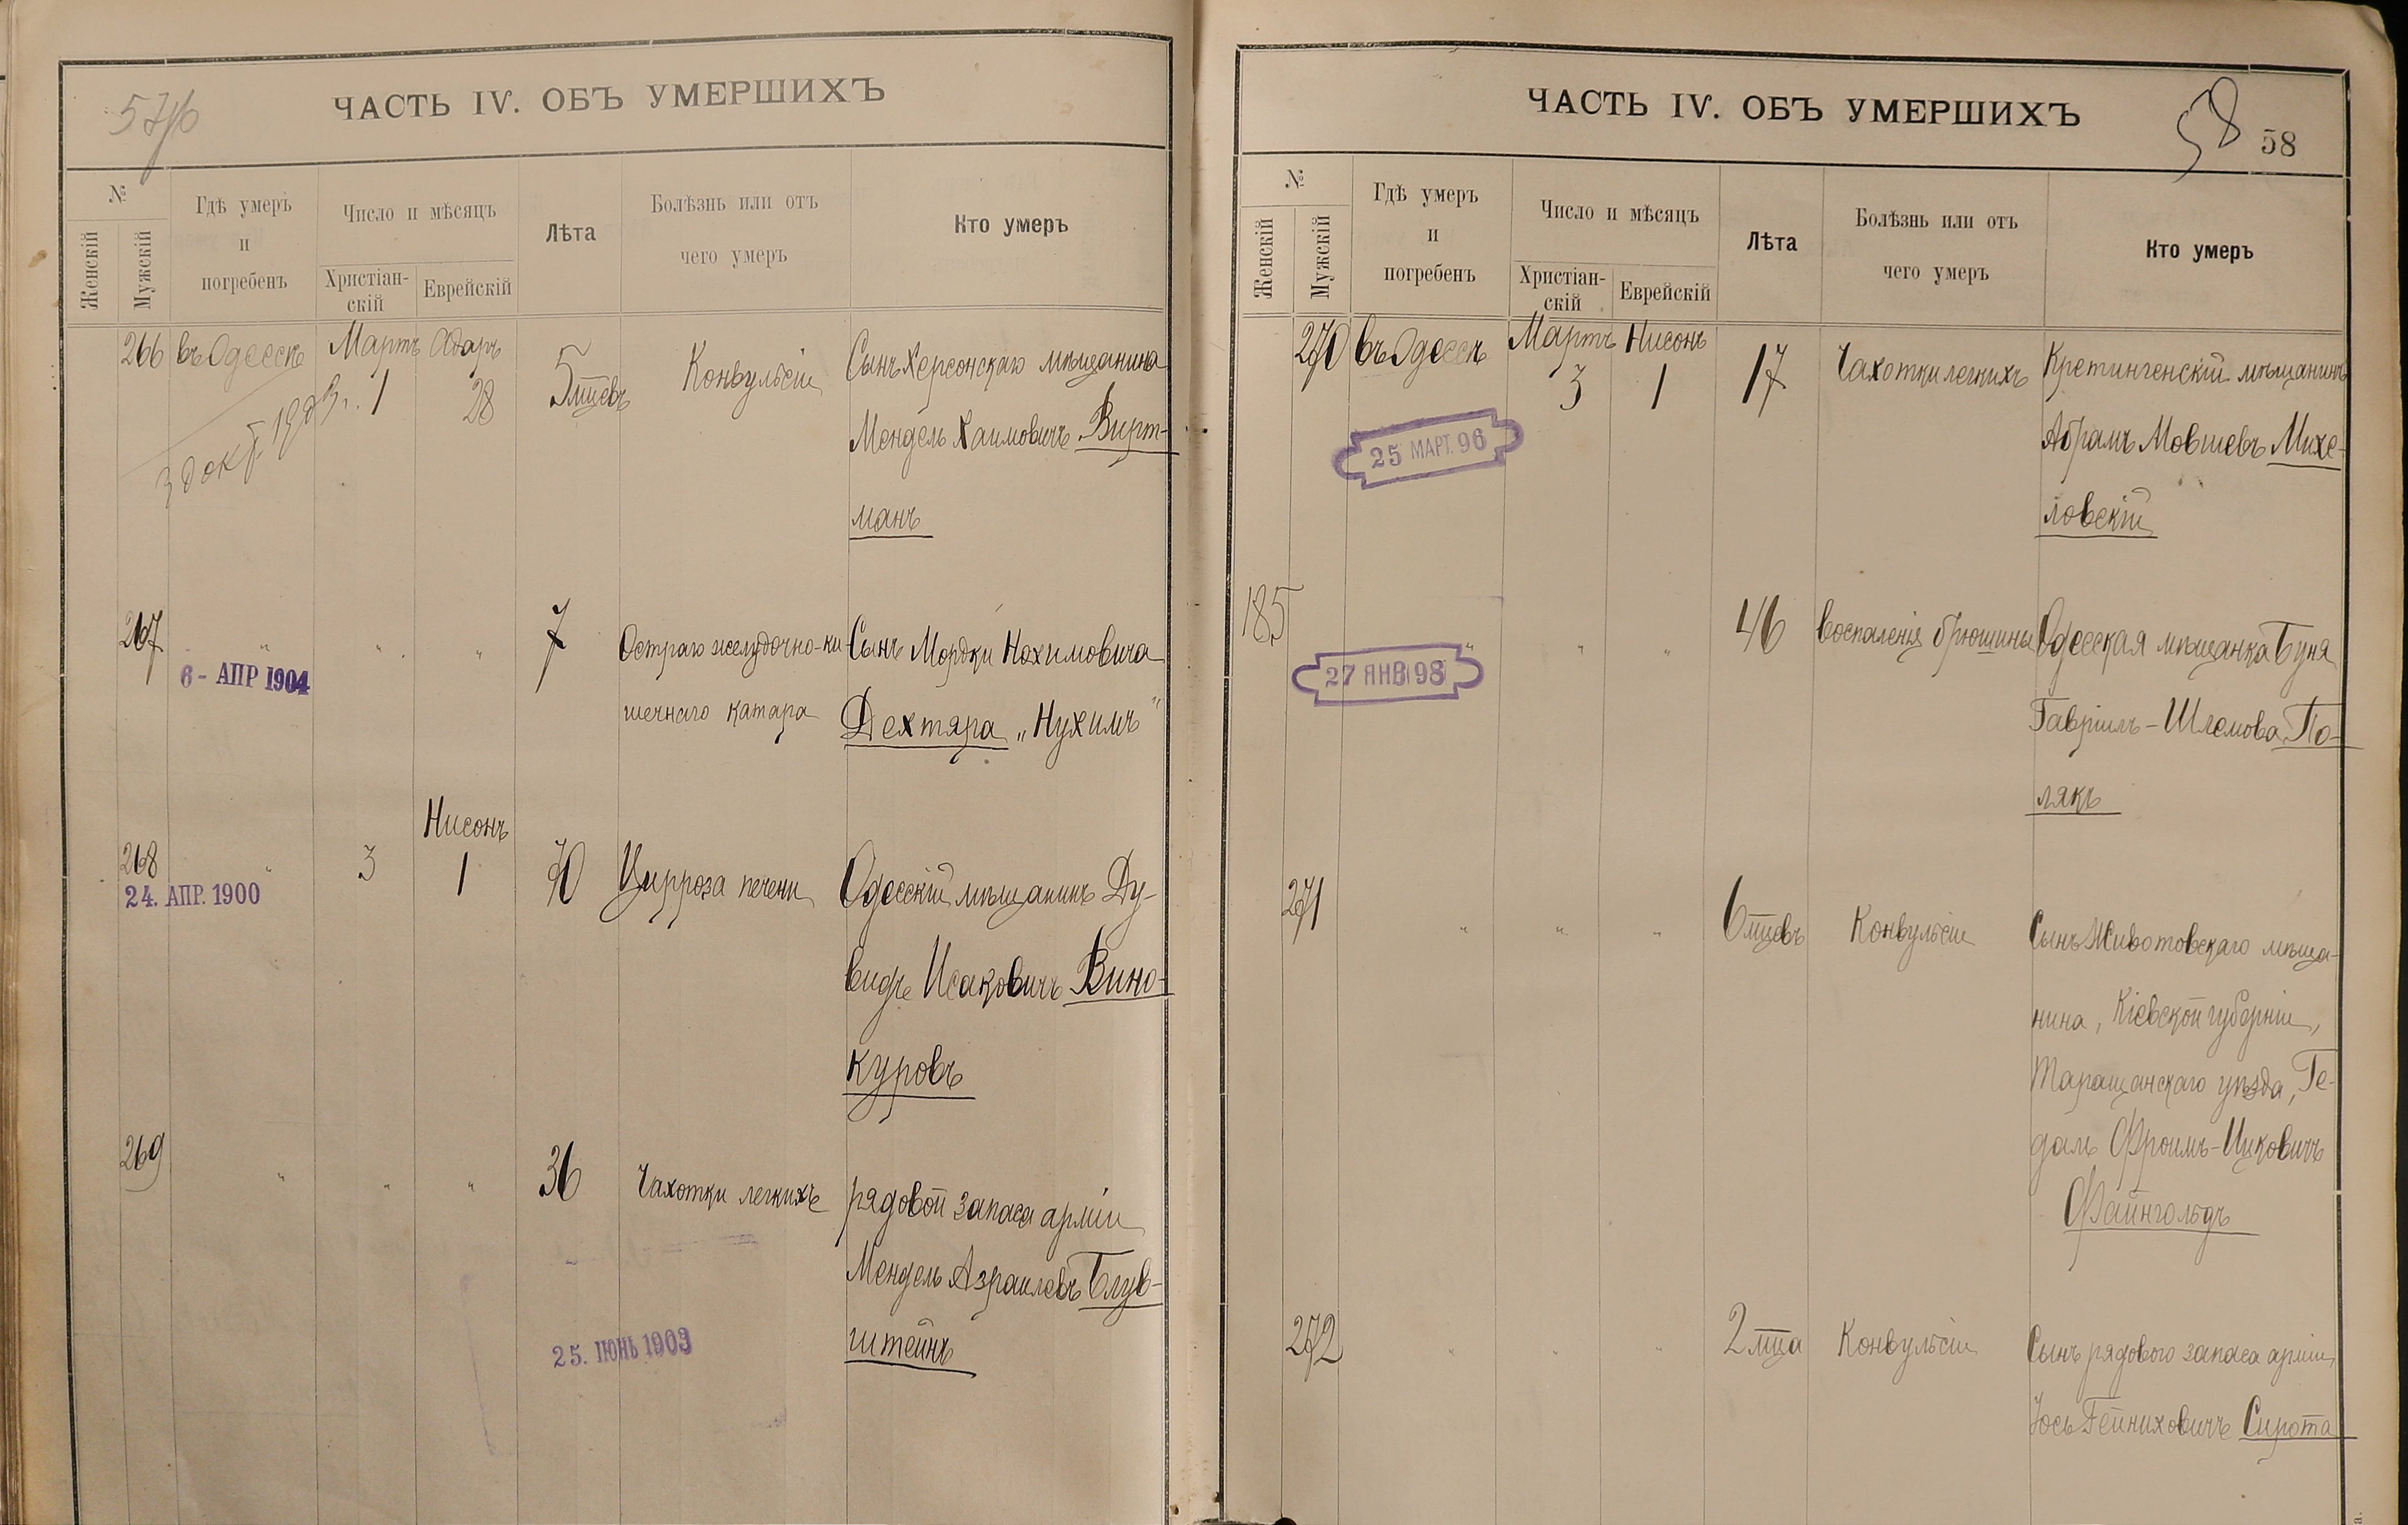 57/б
ЧАСТЬ IV. ОБЪ УМЕРШИХЪ
№
Женскій
Мужскій
Гдѣ умеръ
и
погребенъ
Число и мѣсяцъ
Христіан-
скій
Еврейскій
Лѣта
Болѣзнь или отъ
чего умеръ
Кто умеръ
266 въ Одессѣ Мартъ Адаръ
1 28 5 мцевъ Конвульсіи Сынъ Херсонскаго мѣщанина
Мендель Хаимовичъ Вирт-
манъ
267 " " " 7 Остраго желудочно-ки- Сынъ Мордки Нохимовича
6 - АПР 1904
шечнаго катара Дехтяра „Нухимъ"
Нисонъ
268 " 3 1 70 Цирроза печени Одесскій мѣщанинъ Ду-
24. АПР. 1900
видъ Исаковичъ Вино-
куровъ
269 " " " 36 Чахотки легкихъ рядовой запаса арміи
Мендель Азраилевъ Блув-
штейнъ
25. ІЮНЬ 1903
ЧАСТЬ IV. ОБЪ УМЕРШИХЪ
58
58
№
Женскій
Мужскій
Гдѣ умеръ
и
погребенъ
Число и мѣсяцъ
Христіан-
скій
Еврейскій
Лѣта
Болѣзнь или отъ
чего умеръ
Кто умеръ
270 въ Одессѣ Мартъ Нисонъ
3 1 17 Чахотки легкихъ Кретингенскій мѣщанинъ
25 МАРТ. 96
Абрамъ Мовшевъ Михе-
ловскій
185 " " " 46 Воспаленія брюшины Одесская мѣщанка Буня
27 ЯНВ 98
Гавріилъ-Шлемова По-
лякъ
271 " " " 6 мцевъ Конвульсіи Сынъ Животовскаго мѣща-
нина, Кіевской губерніи,
Таращанскаго уѣзда, Ге-
даль Фроимъ-Ицковичъ
Файнгольдъ
272 " " " 2 мца Конвульсіи Сынъ рядового запаса арміи
Іось Гейниховичъ Сирота